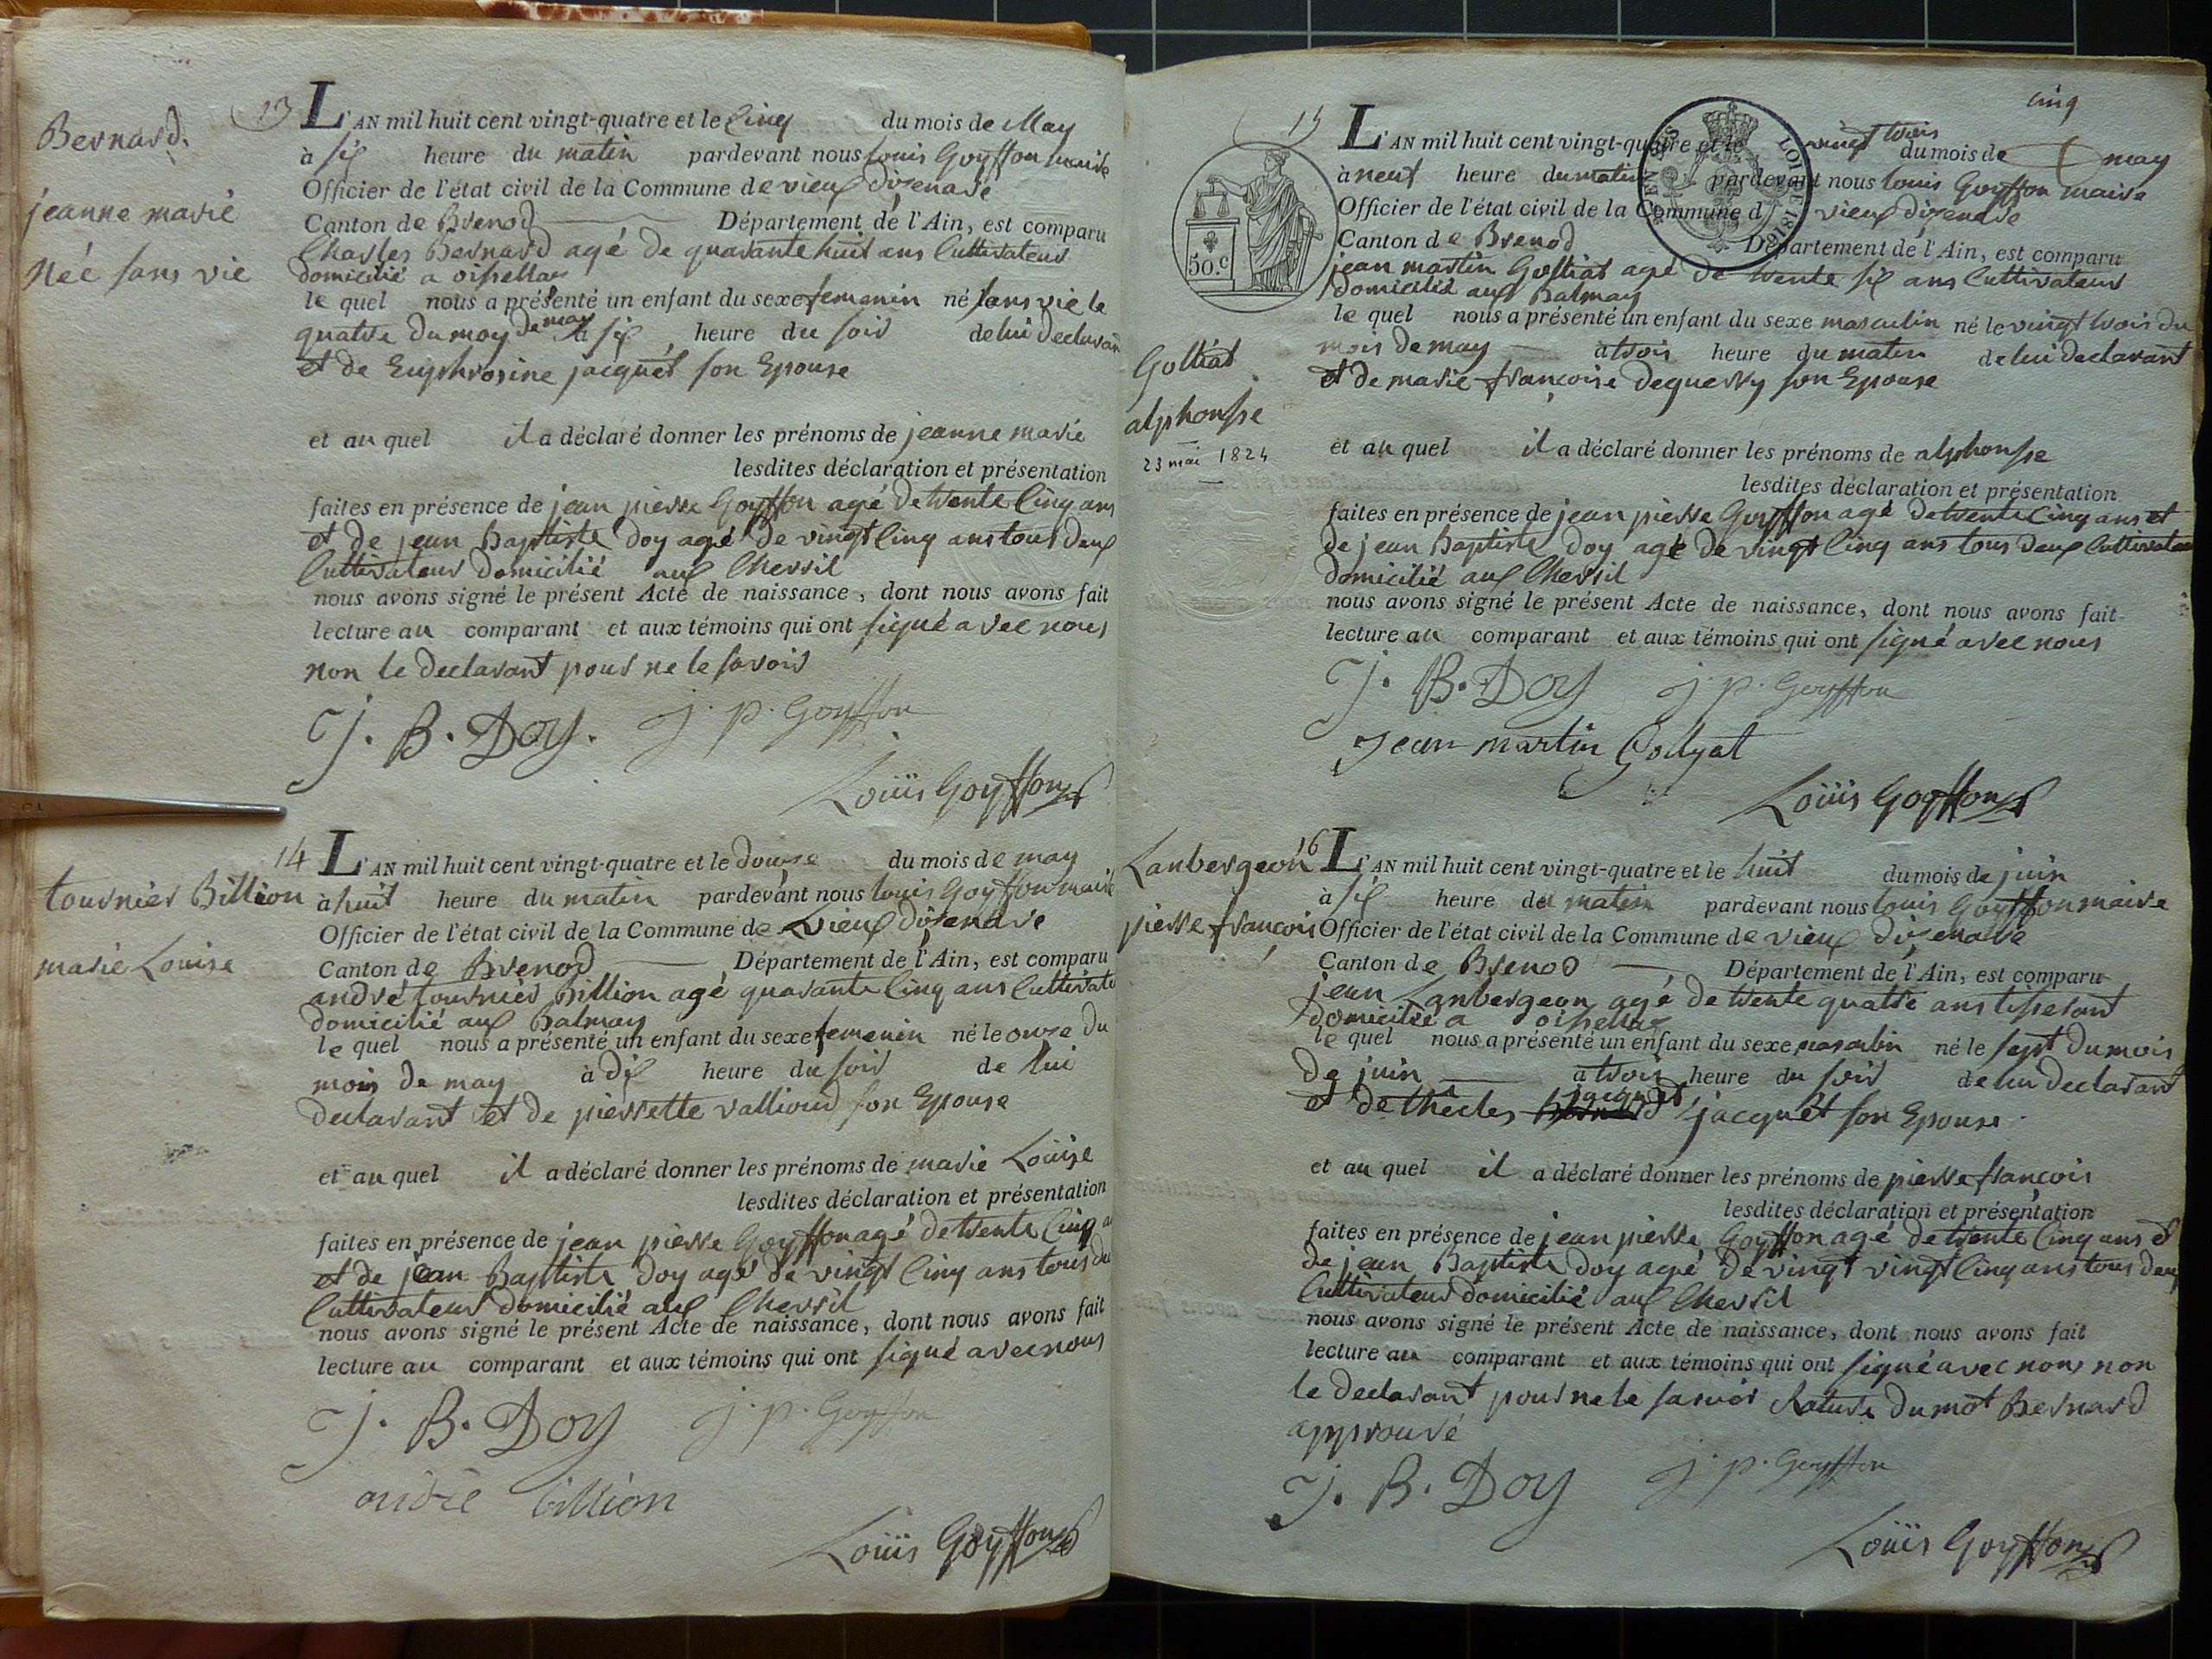 13
Bernard.
jeanne marie
Née sans vie
L'AN mil huit cent vingt-quatre et le Cinq du mois de May
à six heure du matin pardevant nous Louis Goyffon maire
Officier de l'état civil de la Commune de vieux dizenave
Canton de Brenod Département de l'Ain, est comparu
Charles Bernard agé de quarante huit ans Cultivateur
domicilié a oissellaz
le quel nous a présenté un enfant du sexe femenin né sans vie le
quatre du moy de may à six heure du soir de lui declarant
et de Euphrosine jacquét son Epouse
et au quel il a déclaré donner les prénoms de jeanne marie
lesdites déclaration et présentation
faites en présence de jean pierre Goyffon agé de trente Cinq ans
et de jean Baptiste Doy agé de vingt Cinq ans tous deux
Cultivateur domicilié aux Chevril
nous avons signé le présent Acte de naissance, dont nous avons fait
lecture au comparant et aux témoins qui ont signé avec nous
non le declarant pour ne le savoir
J. B. Doy. j. p. Goyffon
Loüis Goyffon
14
tournier Billion
marie Louise
L'AN mil huit cent vingt-quatre et le douze du mois de may
à huit heure du matin pardevant nous louis Goyffon maire
Officier de l'état civil de la Commune de vieux dizenave
Canton de Brenod Département de l'Ain, est comparu
andré tournier Billion agé quarante Cinq ans Cultivate
domicilié aux Balmay
le quel nous a présenté un enfant du sexe femenin né le onze du
mois de may à dix heure du soir de lui
declarant et de pierrette vallioud son Epouse
et au quel il a déclaré donner les prénoms de marie Louise
lesdites déclaration et présentation
faites en présence de jean pierre Goyffon agé de trente Cinq
et de jean Baptiste Doy agé de vingt Cinq ans tous
Cultivateur domicilié aux Chevril
nous avons signé le présent Acte de naissance, dont nous avons fait
lecture au comparant et aux témoins qui ont signé avec nous
J. B. Doy j. p. Goyffon
andré billion
Loüis Goyffon
cinq
15
50.c
LOI DE 1816
Golliat
alphonsse
23 mai 1824
L'AN mil huit cent vingt-quatre et le vingt trois du mois de may
à neuf heure du matin pardevant nous louis Goyffon maire
Officier de l'état civil de la Commune d vieux dizenave
Canton de Brenod Département de l'Ain, est comparu
jean martin Golliat agé de trente six ans Cultivateur
domicilié aux Balmay
le quel nous a présenté un enfant du sexe masculin né le vingt trois du
mois de may à trois heure du matin de lui declarant
et de marie françoise dequerry son Epouse
et au quel il a déclaré donner les prénoms de alphonsse
lesdites déclaration et présentation
faites en présence de jean pierre Goyffon agé de trente Cinq ans et
de jean Baptiste Doy agé de vingt Cinq ans tous deux Cultivateur
domicilié aux Chevril
nous avons signé le présent Acte de naissance, dont nous avons fait
lecture au comparant et aux témoins qui ont signé avec nous
J. B. Doy j. p. Goyffon
Jean martin Golyat
Loüis Goyffon
16
Lanbergeon
pierre françois
L'AN mil huit cent vingt-quatre et le huit du mois de juin
à six heure du matin pardevant nous louis Goyffon maire
Officier de l'état civil de la Commune de vieux dizenave
Canton de Brenod Département de l'Ain, est comparu
jean Lanbergeon agé de trente quatre ans tisserant
domicilié a oissellaz
le quel nous a présenté un enfant du sexe masculin né le sept du mois
de juin à trois heure du soir de lui declarant
et de thècles jacquet jacquét son Epouse
et au quel il a déclaré donner les prénoms de pierre françois
lesdites déclaration et présentation
faites en présence de jean pierre Goyffon agé de trente Cinq ans et
de jean Baptiste Doy agé de vingt vingt Cinq ans tous deux
Cultivateur domicilié aux Chevril
nous avons signé le présent Acte de naissance, dont nous avons fait
lecture au comparant et aux témoins qui ont signé avec nous non
le declarant pour ne le savoir Rature du mot Bernard
approuvé
J. B. Doy j. p. Goyffon
Loüis Goyffon